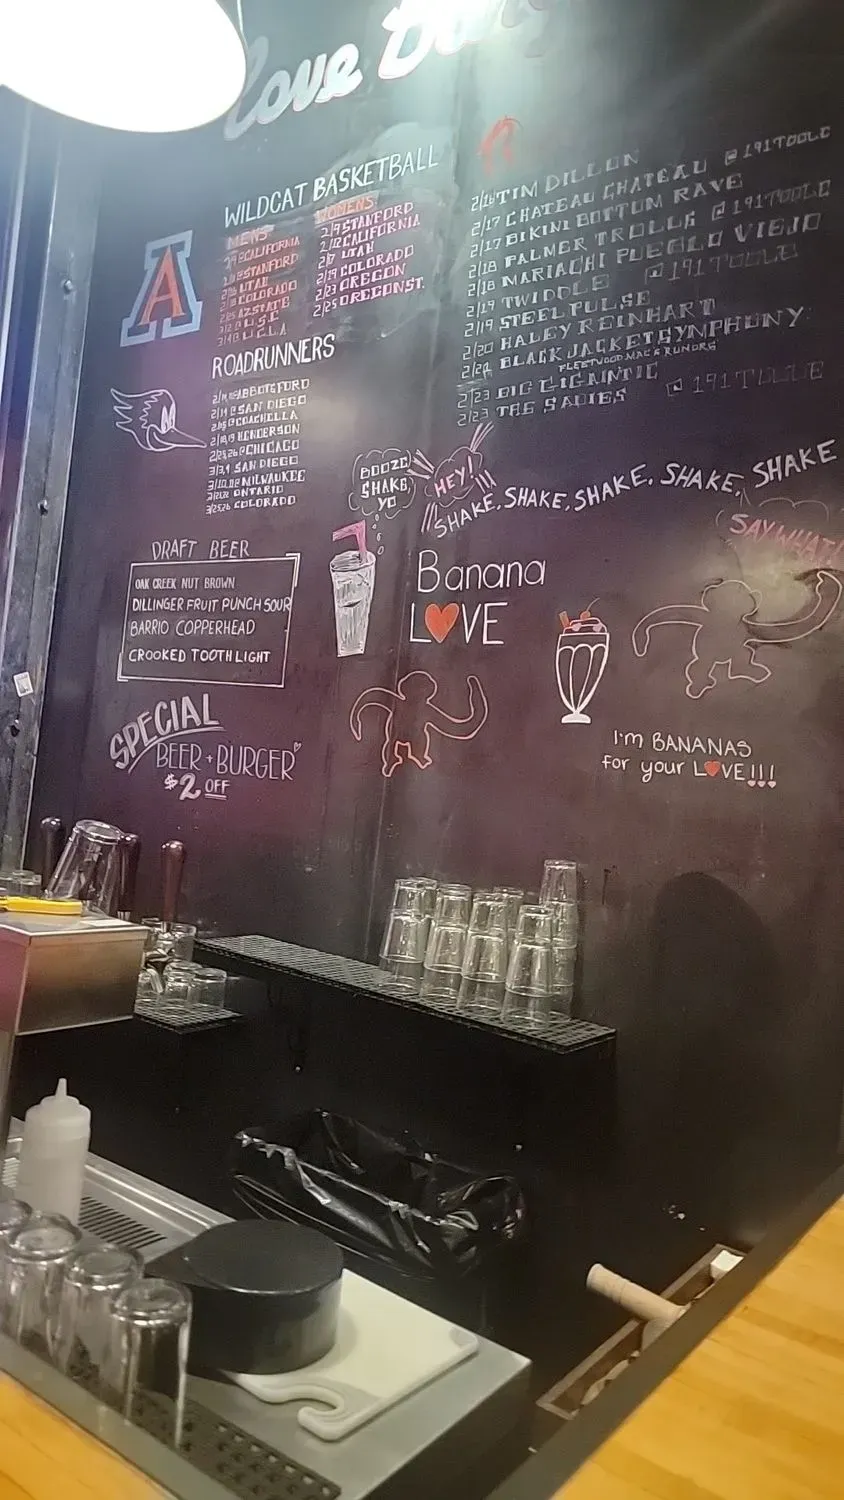 love
WILDCAT BASKETBALL
A
MENS
@CALIFORNIA
@STANFORD
UTAH
COLORADO
AZSTATE
U.S.C
U.C.L.A
WOMENS
2/9 STANFORD
2/12 CALIFORNIA
2/17 UTAH
2/19 COLORADO
2/23 OREGON
2/25 OREGONST.
ROADRUNNERS
@ABBOTSFORD
@SAN DIEGO
@COACHELLA
HENDERSON
2/25,26 @CHICAGO
3/3,4 SAN DIEGO
@ MILWAUKEE
ONTARIO
COLORADO
2/16 TIM DILLON
2/17 CHATEAU CHATEAU @191TOOLE
2/17 BIKINI BOTTOM RAVE
2/18 PALMER TROLLS @191TOOLE
2/18 MARIACHI PUEBLO VIEJO
2/19 TWIDDLE @191TOOLE
2/19 STEEL PULSE
2/20 HALEY REINHART
BLACK JACKET SYMPHONY
FLEETWOOD MAC & RUMORS
2/23 BIG GIGANTIC
2/23 THE SADIES @191TOOLE
BOOZE
SHAKE,
YO
HEY!
SHAKE, SHAKE, SHAKE, SHAKE, SHAKE
SAY WHAT!
DRAFT BEER
OAK CREEK NUT BROWN
DILLINGER FRUIT PUNCH SOUR
BARRIO COPPERHEAD
CROOKED TOOTH LIGHT
Banana
L❤VE
SPECIAL
BEER + BURGER
$2 OFF
I'm BANANAS
for your L❤VE!!!